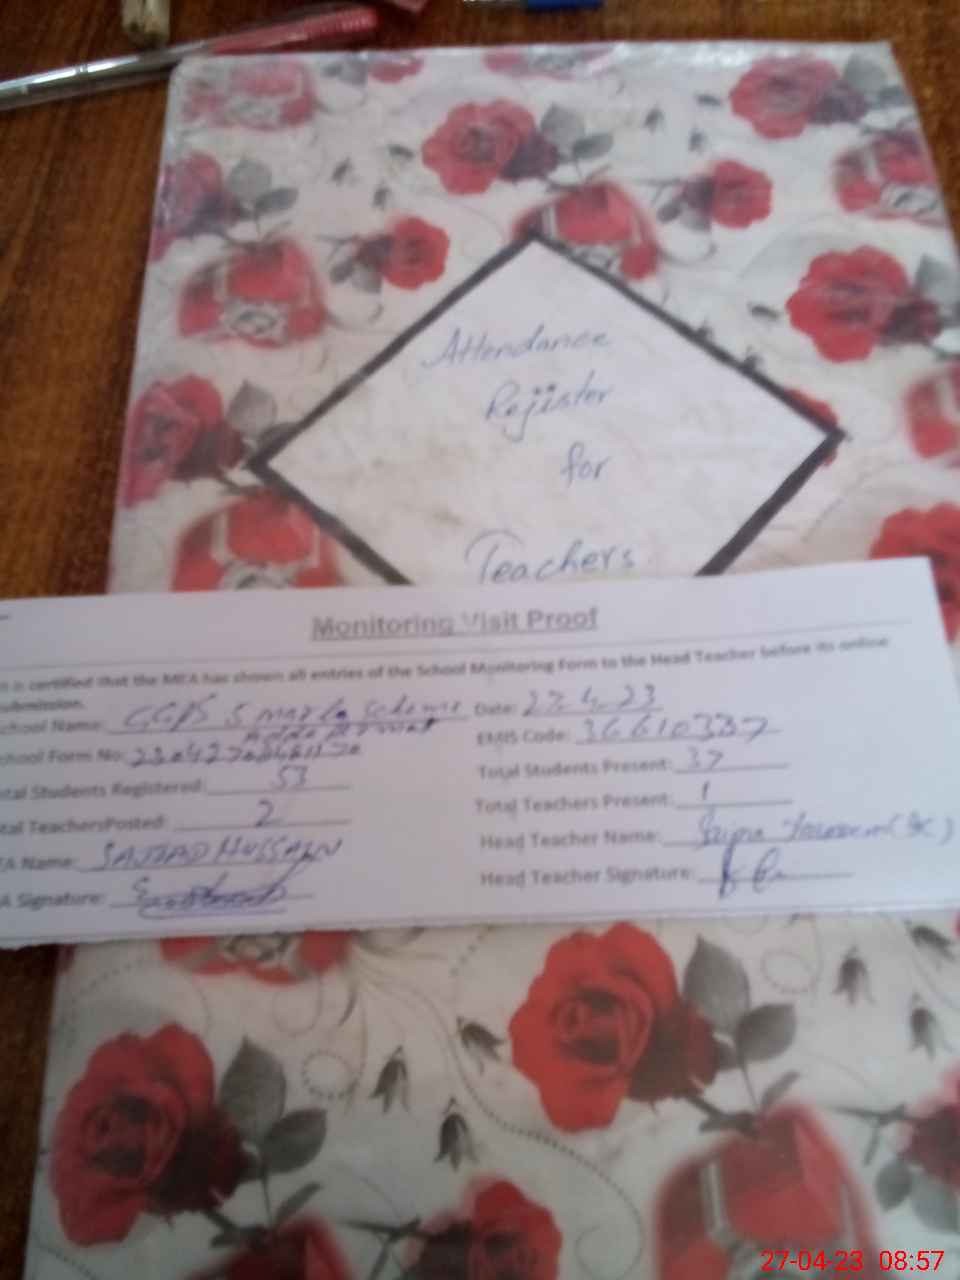 Attendance
Rejister
for
Teachers
Monitoring Visit Proof
It is certified that the MEA has shown all entries of the School Monitoring Form to the Head Teacher before its online
submission.
School Name: GGPS 5 marla scheme Date: 27.4.23
School Form No: EMIS Code: 36610337
Total Students Registered: 53 Total Students Present: 37
Total TeachersPosted: 2 Total Teachers Present: 1
EA Name: SAJJAD HUSSAIN Head Teacher Name:
EA Signature: Head Teacher Signature:
27-04-23 08:57